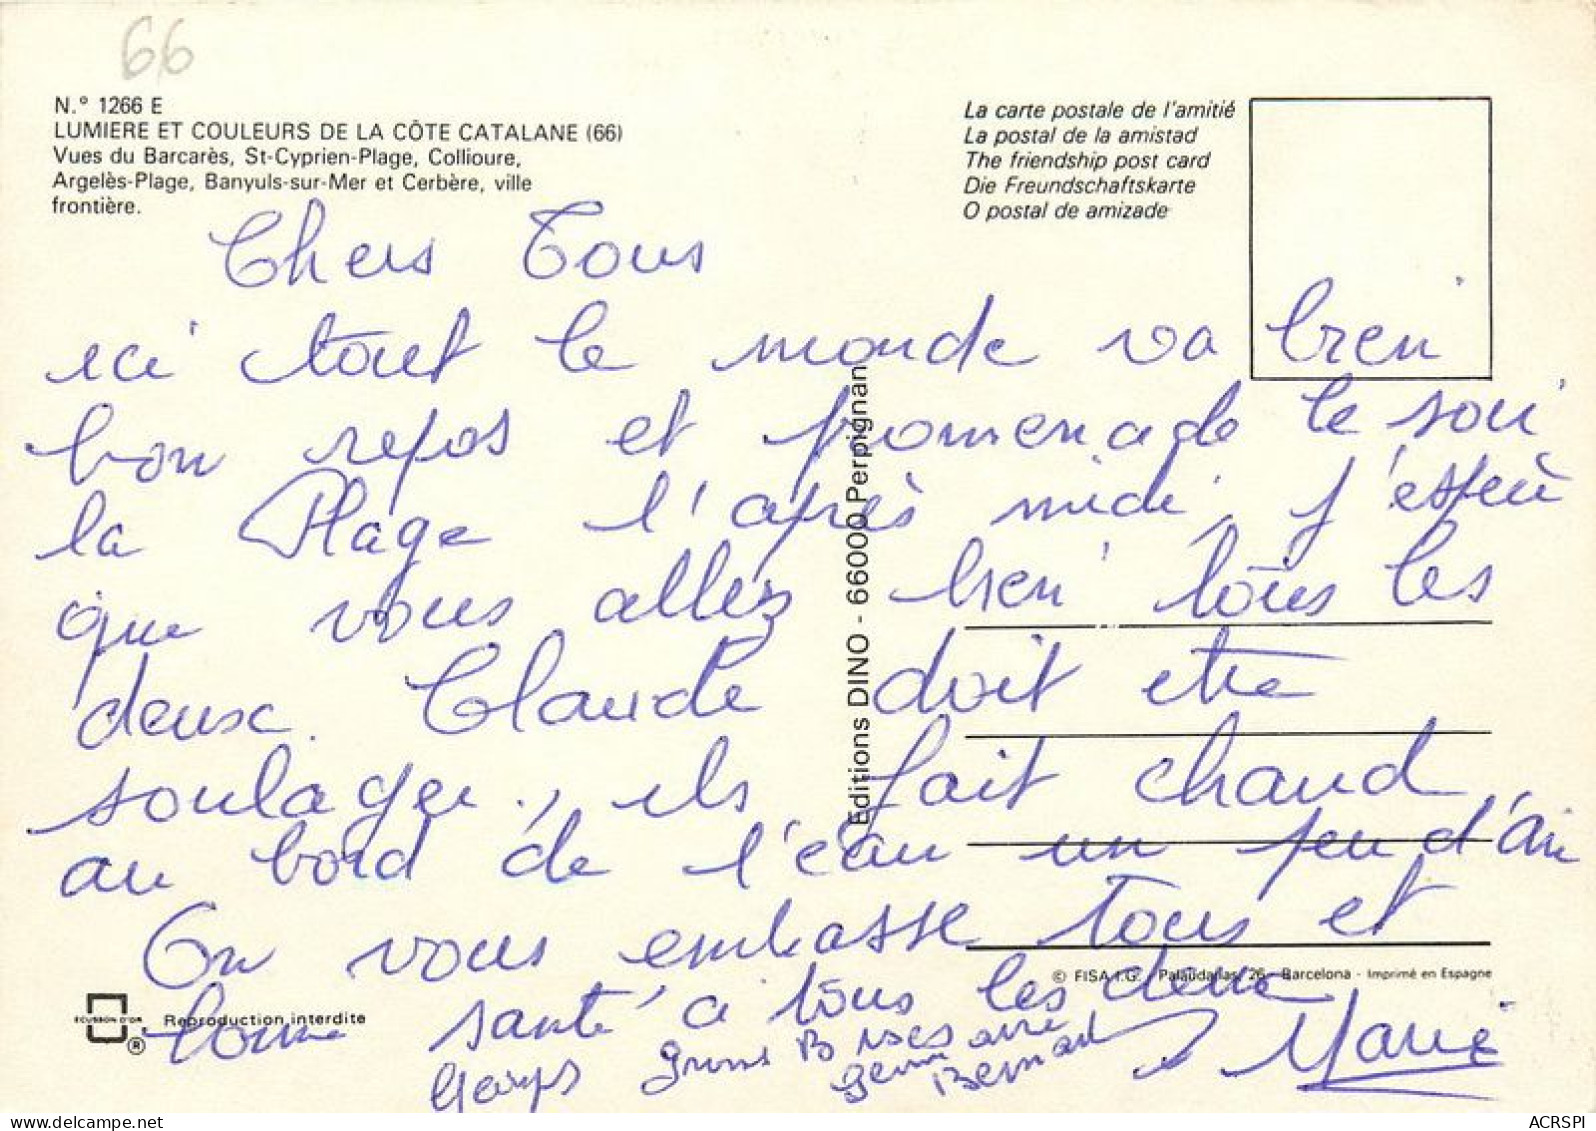 66
N.° 1266 E
LUMIERE ET COULEURS DE LA CÔTE CATALANE (66)
Vues du Barcarès, St-Cyprien-Plage, Collioure,
Argelès-Plage, Banyuls-sur-Mer et Cerbère, ville
frontière.
La carte postale de l'amitié
La postal de la amistad
The friendship post card
Die Freundschaftskarte
O postal de amizade
Chers Tous
ici tout le monde va bien
bon repos et promenade le soir
la Plage l'après midi, j'espère
que vous allez bien tous les
deux. Claude doit etre
soulager., ils fait chaud
au bord de l'eau un peu d'air
On vous embrasse tous et
bonne santé a tous les deux
Grosses Bises
Bernard
Marie
Editions DINO - 66000 Perpignan
© FISA I.G. - Palaudarias, 26 - Barcelona - Imprimé en Espagne
ECUSSON D'OR
®
Reproduction interdite
delcampe.net
ACRSPI